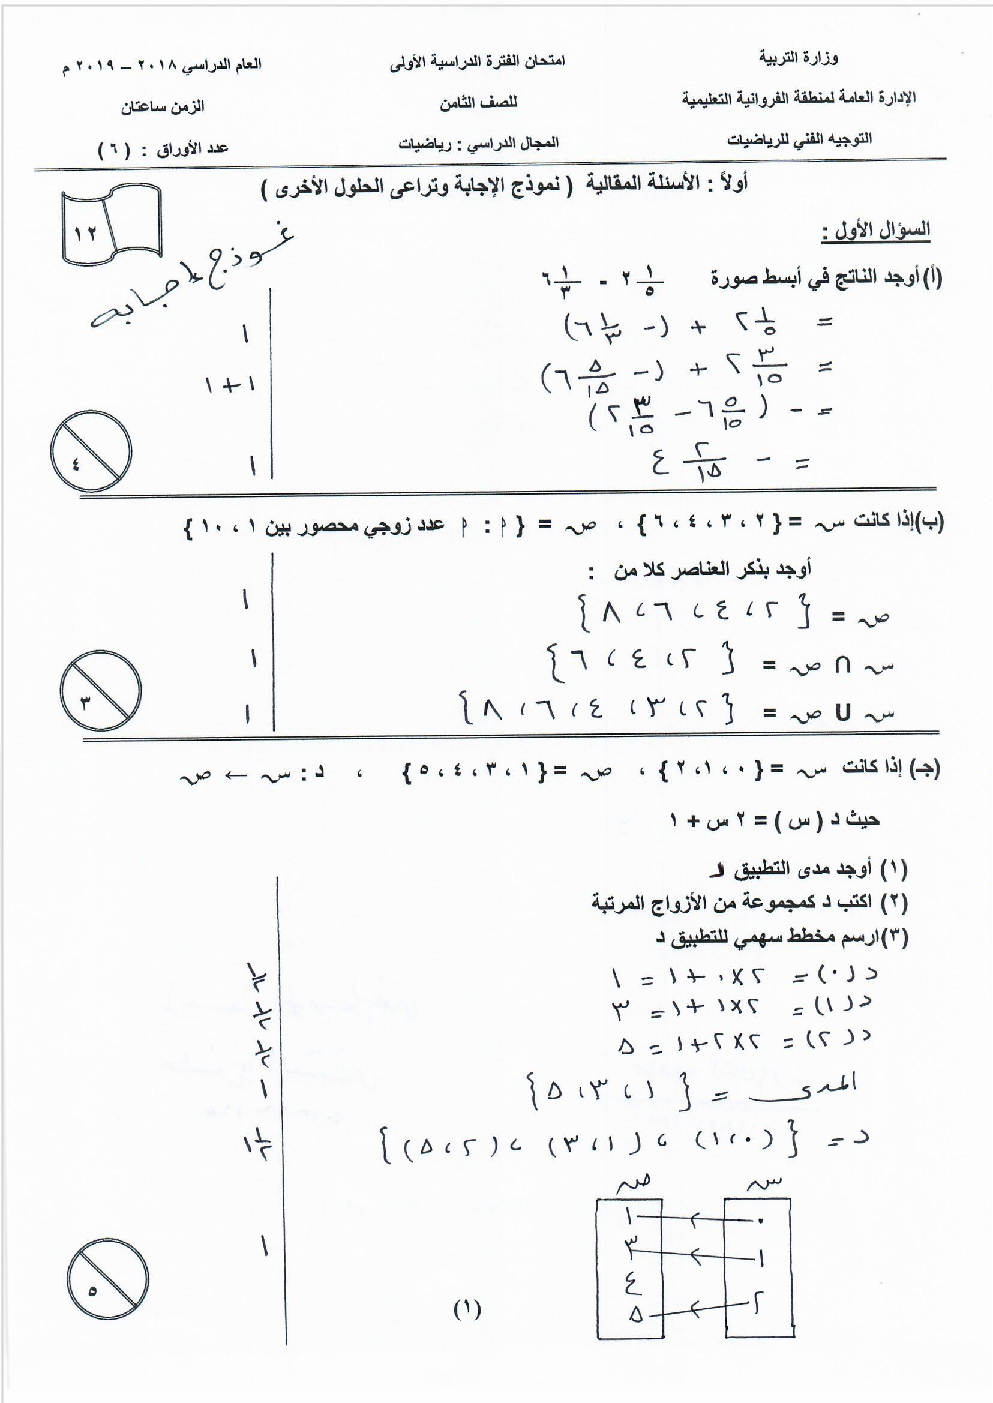 وزارة التربية
الإدارة العامة لمنطقة الفروانية التعليمية
التوجيه الفني للرياضيات
امتحان الفترة الدراسية الأولى
للصف الثامن
المجال الدراسي : رياضيات
العام الدراسي ٢٠١٨ – ٢٠١٩ م
الزمن ساعتان
عدد الأوراق : ( ٦ )
أولاً : الأسئلة المقالية ( نموذج الإجابة وتراعى الحلول الأخرى )
١٢
نموذج إجابه
السؤال الأول :
(أ) أوجد الناتج في أبسط صورة ٢ ١/٥ - ٦ ١/٣
= ٢ ١/٥ + (- ٦ ١/٣) ١
= ٢ ٣/١٥ + (- ٦ ٥/١٥) ١+١
= - (٦ ٥/١٥ - ٢ ٣/١٥)
= - ٤ ٢/١٥ ١
٤
(ب) إذا كانت س = {٢ ، ٣ ، ٤ ، ٦} ، ص = { أ : أ عدد زوجي محصور بين ١ ، ١٠ }
أوجد بذكر العناصر كلا من :
ص = { ٢ ، ٤ ، ٦ ، ٨ } ١
س ∩ ص = { ٢ ، ٤ ، ٦ } ١
س U ص = { ٢ ، ٣ ، ٤ ، ٦ ، ٨ } ١
٣
(جـ) إذا كانت س = {٠ ، ١ ، ٢} ، ص = {١ ، ٣ ، ٤ ، ٥} ، د : س ← ص
حيث د ( س ) = ٢ س + ١
(١) أوجد مدى التطبيق د
(٢) اكتب د كمجموعة من الأزواج المرتبة
(٣) ارسم مخطط سهمي للتطبيق د
د(٠) = ٢×٠ + ١ = ١ ١/٢
د(١) = ٢×١ + ١ = ٣ ١/٢
د(٢) = ٢×٢ + ١ = ٥ ١/٢
المدى = { ١ ، ٣ ، ٥ } ١
د = { (٠،١) ، (١،٣) ، (٢،٥) } ١ ١/٢
س ص
٠ ١
١ ٣
٤
٢ ٥
١
٥
(١)